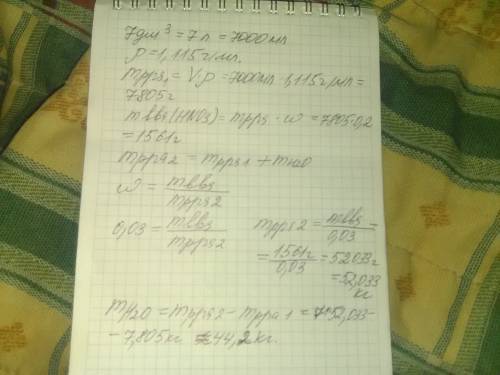 7дм³ = 7 л = 7000 мл
ρ = 1,115 г/мл.
mрра1 = V·ρ = 7000мл · 1,115 г/мл =
7805 г
m вва (HNO3) = mрра · ω = 7805·0,2
= 1561г
mрра2 = mрра1 + mH2O
ω = mвва / mрра2
0,03 = mвва / mрра2
mрра2 = mвва / 0,03 =
= 1561г / 0,03 = 52033 г
= 52,033 кг
mH2O = mрра2 - mрра1 = 52,033-
- 7,805кг = 44,2 кг.